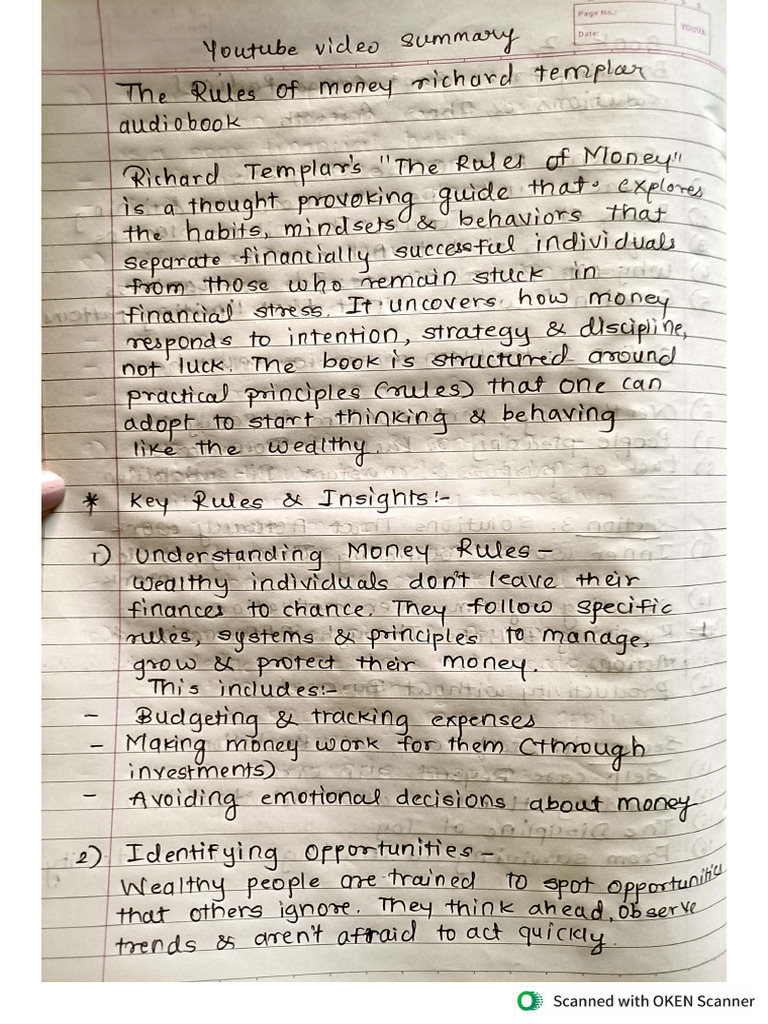 Page No.:
Date:
YOUVA
Youtube video summary
The Rules of money richard templar
audiobook
Richard Templar's "The Rules of Money"
is a thought provoking guide that explores
the habits, mindsets & behaviors that
separate financially successful individuals
from those who remain stuck in
financial stress. It uncovers how money
responds to intention, strategy & discipline,
not luck. The book is structured around
practical principles (rules) that one can
adopt to start thinking & behaving
like the wealthy.
* Key Rules & Insights:-
1) Understanding Money Rules -
Wealthy individuals don't leave their
finances to chance. They follow specific
rules, systems & principles to manage,
grow & protect their money.
This includes:-
- Budgeting & tracking expenses
- Making money work for them (through
investments)
- Avoiding emotional decisions about money
2) Identifying opportunities -
Wealthy people are trained to spot opportunities
that others ignore. They think ahead, observe
trends & aren't afraid to act quickly.
Scanned with OKEN Scanner